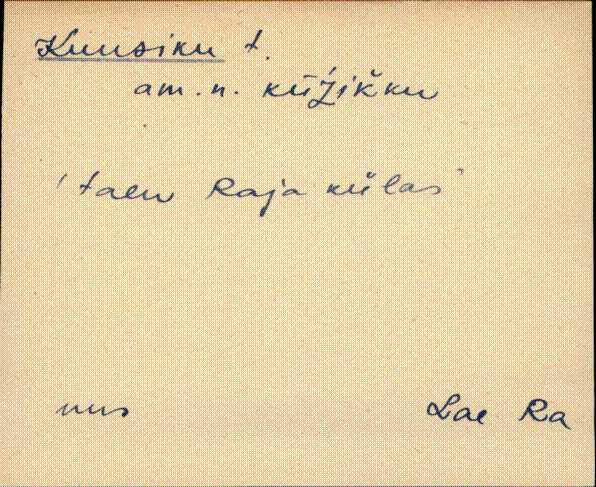 Kuusiku t.
am. n. kūź̆ikku
'talu Raja külas'
uus Lae Ra